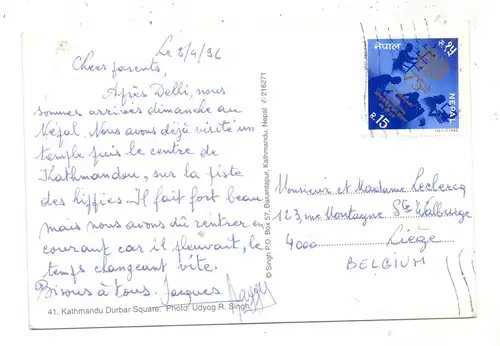 Le 3/4/96
Chers parents,
Après Delhi, nous
sommes arrivés dimanche au
Népal. Nous avons déjà visité un
temple puis le centre de
Kathmandou, sur la piste
des hippies. Il fait fort beau
mais nous avons dû rentrer en
courant car il pleuvait, le
temps changeant vite.
Bisous à tous. Jacques
41. Kathmandu Durbar Square. Photo: Udyog R. Singh
© Singh P.O. Box 57, Basantapur, Kathmandu, Nepal ✆ 216271
नेपाल
रु. १५
NEPAL
R. 15
Monsieur et Madame Leclercq
123, rue Montagne Ste Walburge
4000 Liège
BELGIUM